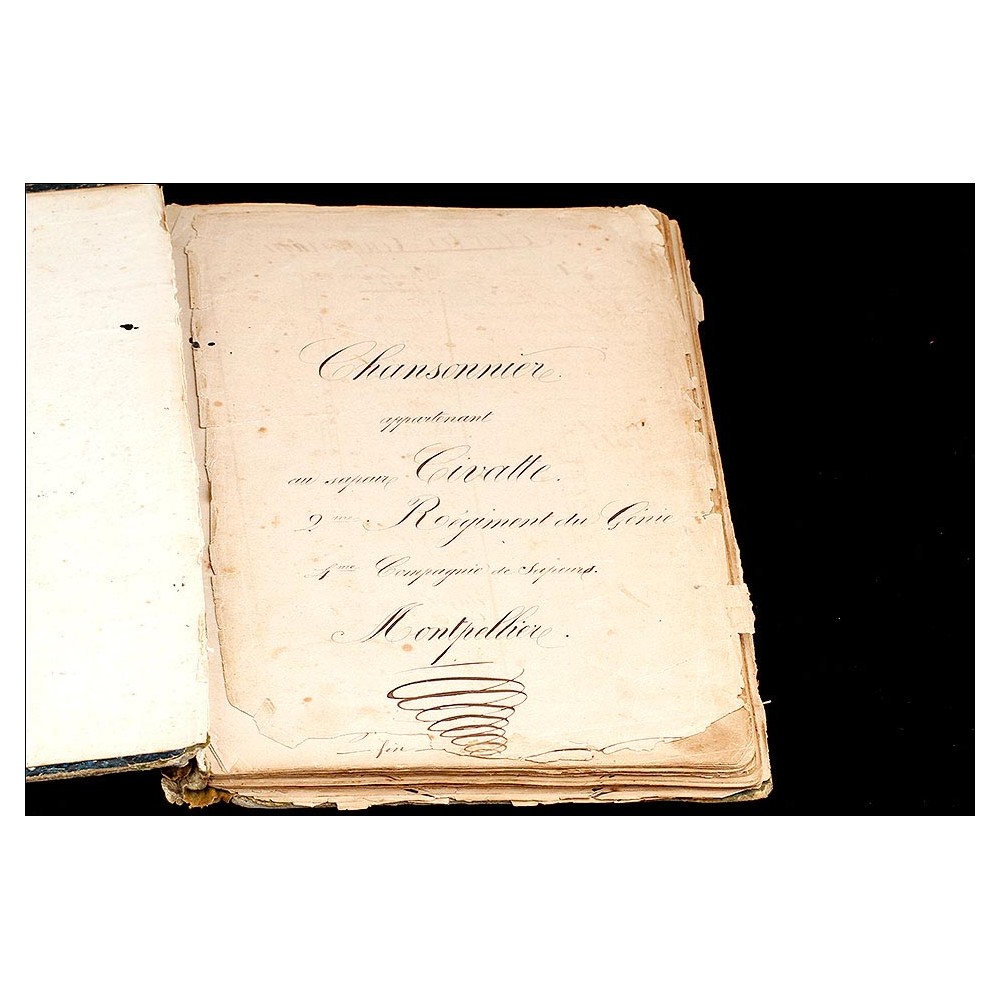 Chansonnier.
appartenant
au sapeur Civatte.
2me. Régiment du Génie
4me Compagnie de Sapeurs.
Montpellier.
fin